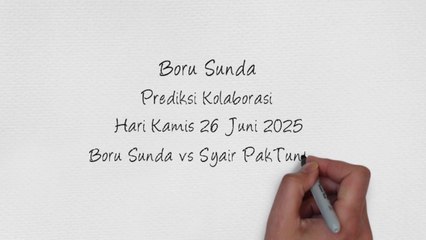 Boru Sunda
Prediksi Kolaborasi
Hari Kamis 26 Juni 2025
Boru Sunda vs Syair PakTun